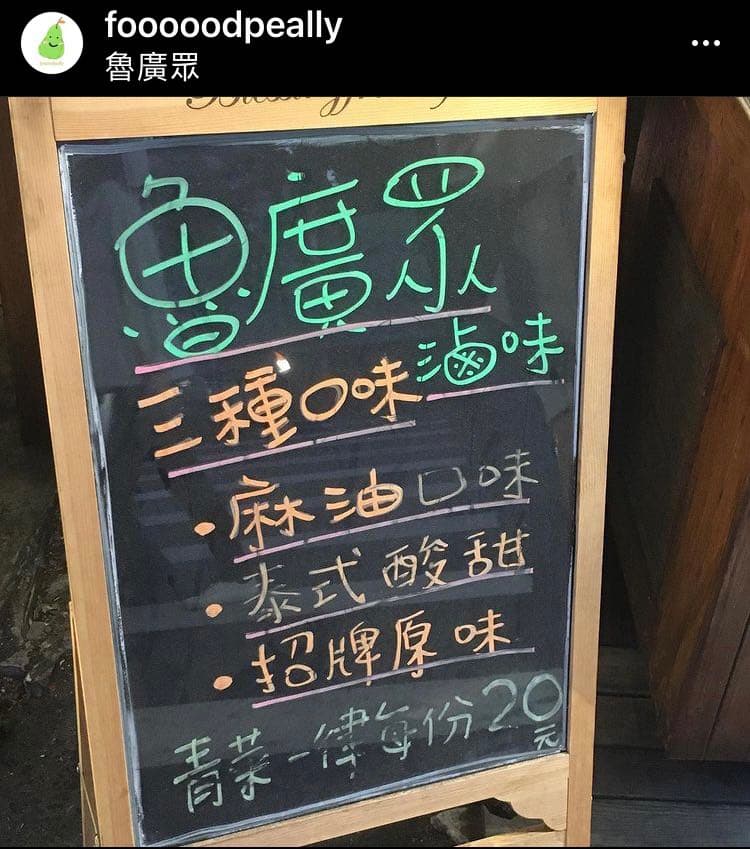 fooooodpeally
魯廣眾
魯廣眾
滷味
三種口味
·麻油口味
·泰式酸甜
·招牌原味
青菜一律每份20元